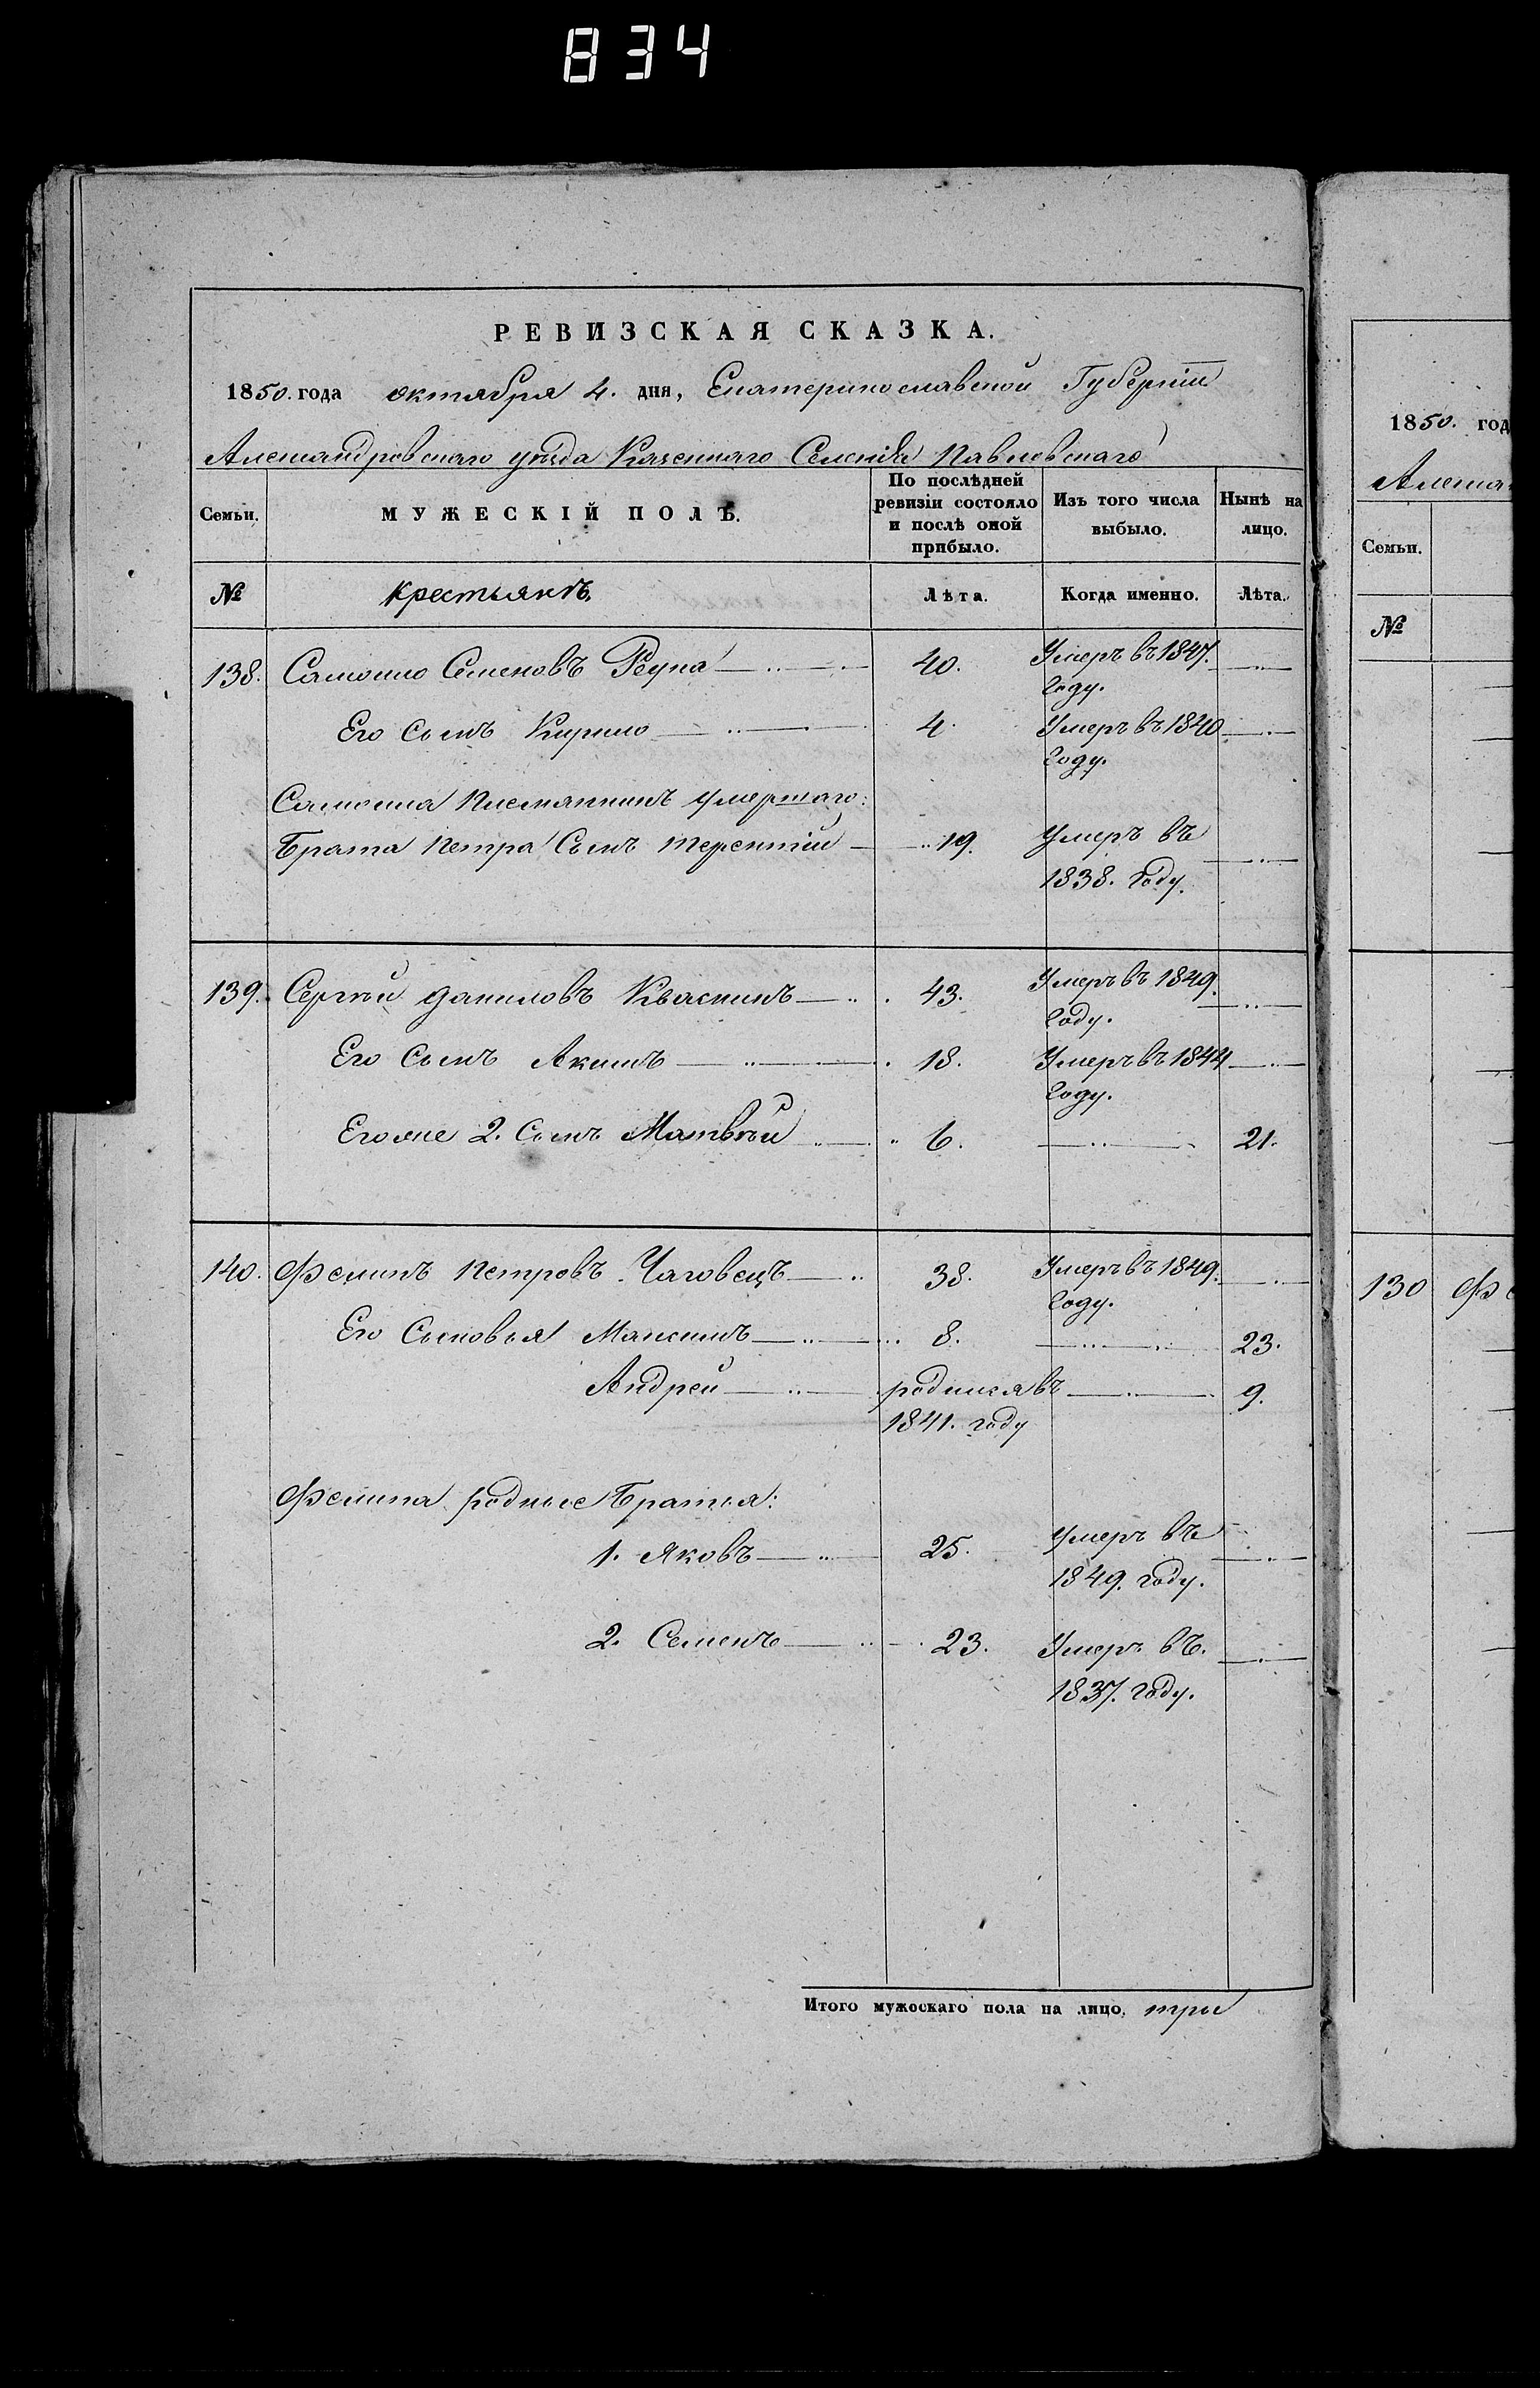 834
РЕВИЗСКАЯ СКАЗКА.
1850. года октября 4. дня, Екатеринославской Губерніи
Александровскаго уѣзда Казеннаго Селенія Павловскаго
Семьи. МУЖЕСКІЙ ПОЛЪ. По послѣдней ревизіи состояло и послѣ оной прибыло. Изъ того числа выбыло. Нынѣ на лицо.
№ крестьянъ. Лѣта. Когда именно. Лѣта.
138. Самойло Семеновъ Репка 40. Умеръ въ 1847. году.
Его Сынъ Кирило 4. Умеръ въ 1840 году.
Самойла Племянникъ умершаго:
Брата Петра Сынъ Терентій 19. Умеръ въ
1838. году.
139. Сергѣй Даниловъ Квасникъ 43. Умеръ въ 1849. году.
Его Сынъ Акимъ 18. Умеръ въ 1844 году.
Егоже 2. Сынъ Матвѣй 6. 21.
140. Феликъ Петровъ Чаговецъ 38. Умеръ въ 1849. году.
Его Сыновья Максимъ 8. 23.
Андрей родился въ 9.
1841. году
родные Братья:
1. Яковъ 25. Умеръ въ
1849. году.
2. Семенъ 23. Умеръ въ.
1837. году.
Итого мужескаго пола на лицо, три
1850. год
Алекса
Семьи.
№
130 Фе